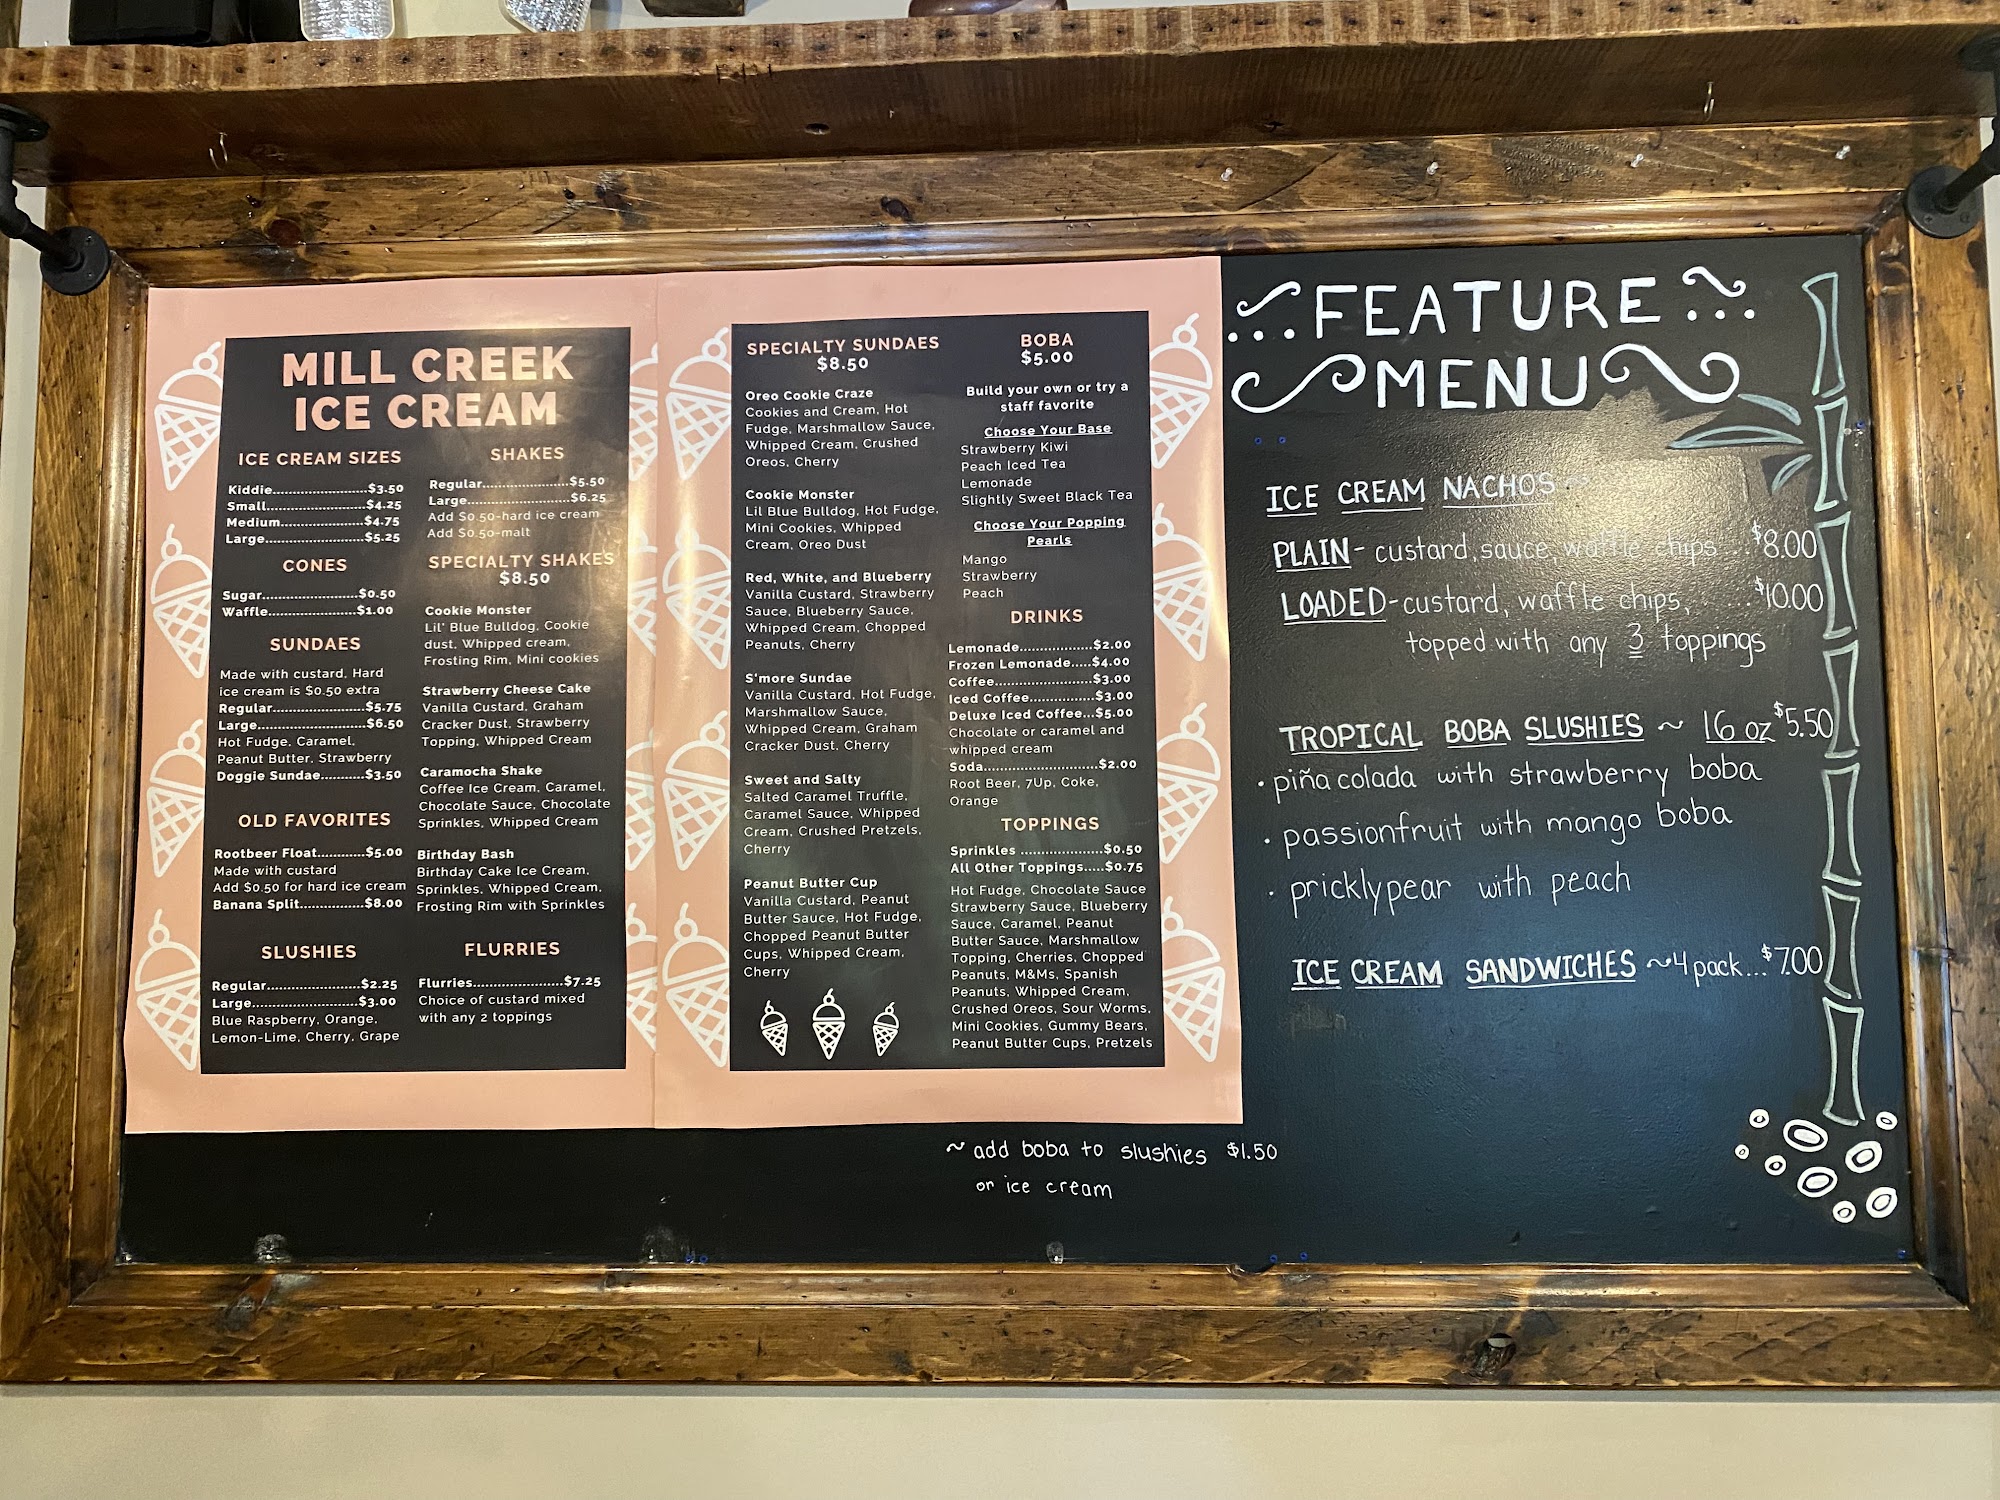 MILL CREEK
ICE CREAM
ICE CREAM SIZES
Kiddie..........................$3.50
Small...........................$4.25
Medium.......................$4.75
Large...........................$5.25
CONES
Sugar...........................$0.50
Waffle........................$1.00
SUNDAES
Made with custard, Hard
ice cream is $0.50 extra
Regular.......................$5.75
Large...........................$6.50
Hot Fudge, Caramel,
Peanut Butter, Strawberry
Doggie Sundae...........$3.50
OLD FAVORITES
Rootbeer Float............$5.00
Made with custard
Add $0.50 for hard ice cream
Banana Split................$8.00
SLUSHIES
Regular.........................$2.25
Large.............................$3.00
Blue Raspberry, Orange,
Lemon-Lime, Cherry, Grape
SHAKES
Regular.....................$5.50
Large..........................$6.25
Add $0.50-hard ice cream
Add $0.50-malt
SPECIALTY SHAKES
$8.50
Cookie Monster
Lil' Blue Bulldog, Cookie
dust, Whipped cream,
Frosting Rim, Mini cookies
Strawberry Cheese Cake
Vanilla Custard, Graham
Cracker Dust, Strawberry
Topping, Whipped Cream
Caramocha Shake
Coffee Ice Cream, Caramel,
Chocolate Sauce, Chocolate
Sprinkles, Whipped Cream
Birthday Bash
Birthday Cake Ice Cream,
Sprinkles, Whipped Cream,
Frosting Rim with Sprinkles
FLURRIES
Flurries.......................$7.25
Choice of custard mixed
with any 2 toppings
SPECIALTY SUNDAES
$8.50
Oreo Cookie Craze
Cookies and Cream, Hot
Fudge, Marshmallow Sauce,
Whipped Cream, Crushed
Oreos, Cherry
Cookie Monster
Lil Blue Bulldog, Hot Fudge,
Mini Cookies, Whipped
Cream, Oreo Dust
Red, White, and Blueberry
Vanilla Custard, Strawberry
Sauce, Blueberry Sauce,
Whipped Cream, Chopped
Peanuts, Cherry
S'more Sundae
Vanilla Custard, Hot Fudge,
Marshmallow Sauce,
Whipped Cream, Graham
Cracker Dust, Cherry
Sweet and Salty
Salted Caramel Truffle,
Caramel Sauce, Whipped
Cream, Crushed Pretzels,
Cherry
Peanut Butter Cup
Vanilla Custard, Peanut
Butter Sauce, Hot Fudge,
Chopped Peanut Butter
Cups, Whipped Cream,
Cherry
BOBA
$5.00
Build your own or try a
staff favorite
Choose Your Base
Strawberry Kiwi
Peach Iced Tea
Lemonade
Slightly Sweet Black Tea
Choose Your Popping
Pearls
Mango
Strawberry
Peach
DRINKS
Lemonade..................$2.00
Frozen Lemonade.....$4.00
Coffee........................$3.00
Iced Coffee................$3.00
Deluxe Iced Coffee...$5.00
Chocolate or caramel and
whipped cream
Soda............................$2.00
Root Beer, 7Up, Coke,
Orange
TOPPINGS
Sprinkles ....................$0.50
All Other Toppings.....$0.75
Hot Fudge, Chocolate Sauce
Strawberry Sauce, Blueberry
Sauce, Caramel, Peanut
Butter Sauce, Marshmallow
Topping, Cherries, Chopped
Peanuts, M&Ms, Spanish
Peanuts, Whipped Cream,
Crushed Oreos, Sour Worms,
Mini Cookies, Gummy Bears,
Peanut Butter Cups, Pretzels
~ add boba to slushies $1.50
or ice cream
FEATURE
MENU
ICE CREAM NACHOS ~
PLAIN - custard, sauce, waffle chips ...$8.00
LOADED - custard, waffle chips, .....$10.00
topped with any 3 toppings
TROPICAL BOBA SLUSHIES ~ 16 oz $5.50
• piña colada with strawberry boba
• passionfruit with mango boba
• pricklypear with peach
ICE CREAM SANDWICHES ~4 pack...$7.00